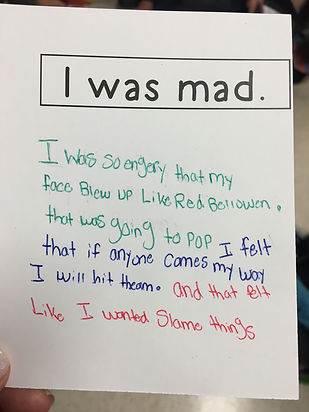 I was mad.
I was so engery that my
face Blew up Like Red Bellowen.
that was going to POP I felt
that if anyone comes my way
I will hit theam. and that felt
Like I wanted Slame things